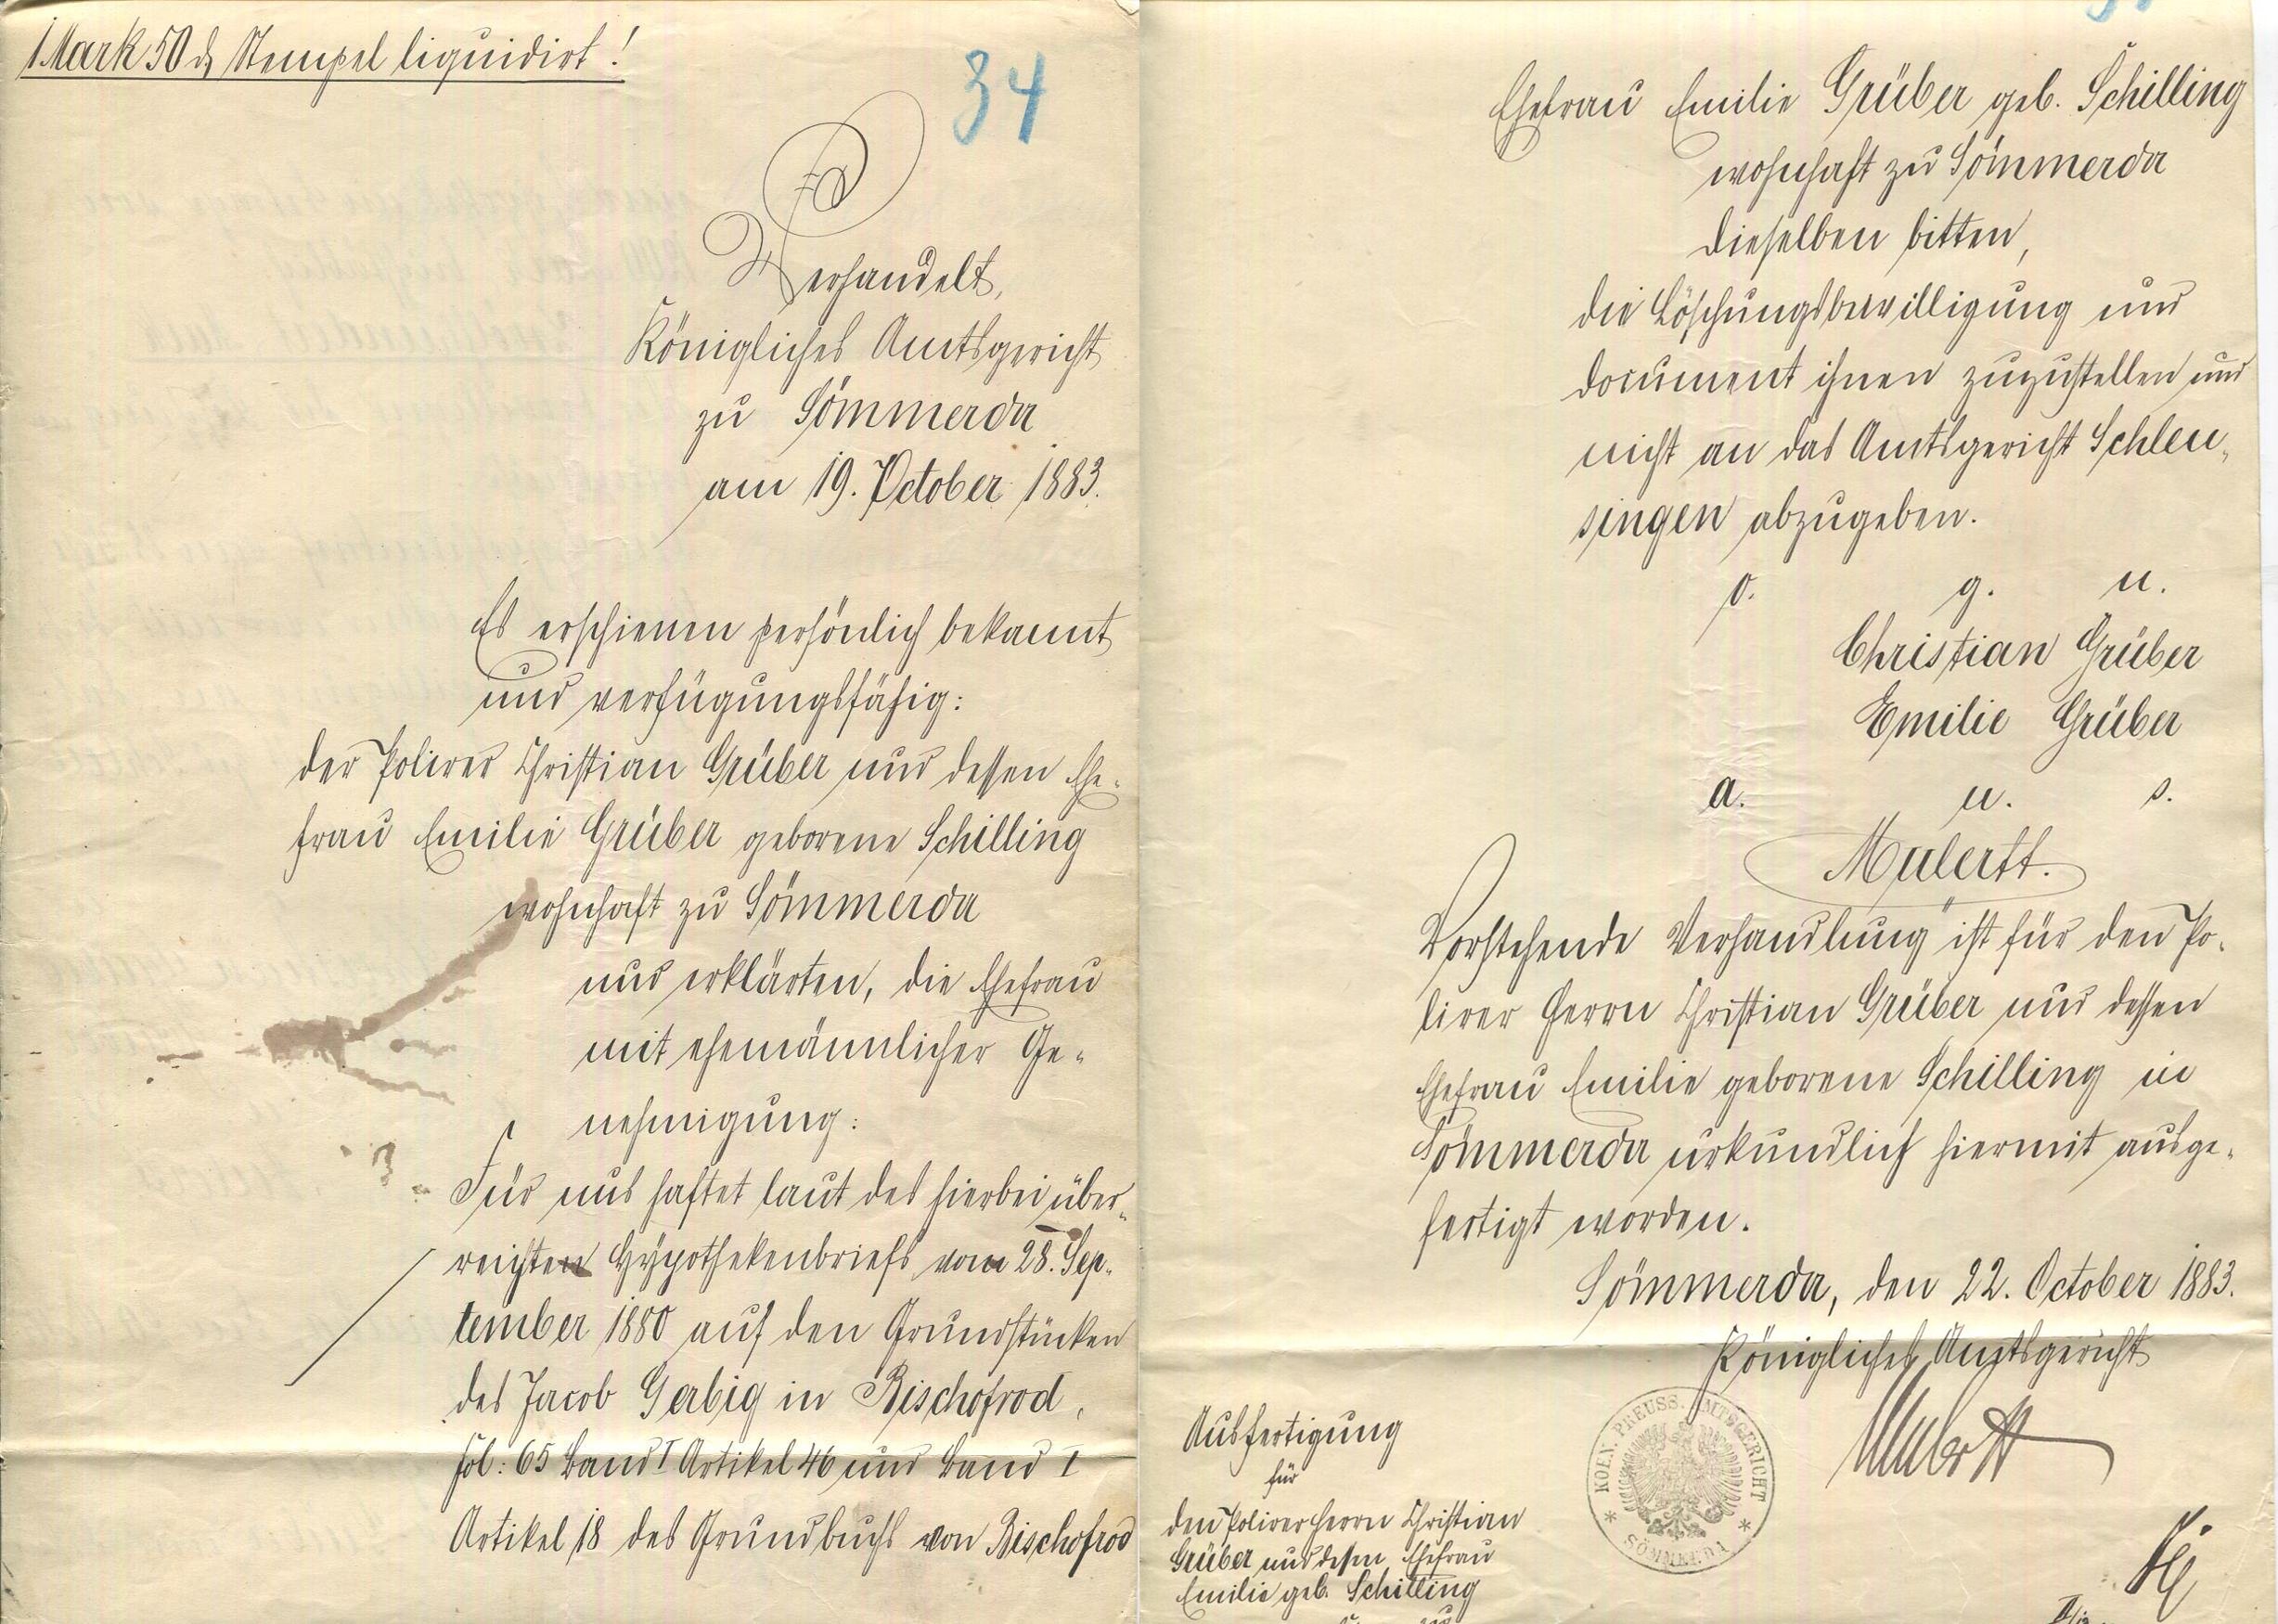 1 Mark 50 ₰ Stempel liquidirt!
34
Verhandelt,
Königliches Amtsgericht
zu Sömmerda
am 19. October 1883.
Es erschienen persönlich bekannt
und verfügungsfähig:
der Polirer Christian Grüber und dessen Ehe-
frau Emilie Grüber geborene Schilling
wohnhaft zu Sömmerda
und erklärten, die Ehefrau
mit ehemännlicher Ge-
nehmigung:
Für uns haftet laut des hierbei über-
reichten Hypothekenbriefs vom 28. Sep-
tember 1880 auf den Grundstücken
des Jacob Gerbig in Bischofrod,
fol: 65 Band I Artikel 46 und Band I
Artikel 18 des Grundbuchs von Bischofrod
Ehefrau Emilie Grüber geb. Schilling
wohnhaft zu Sömmerda
dieselben bitten,
die Löschungsbewilligung und
document ihnen zuzustellen und
nicht an das Amtsgericht Schleu-
singen abzugeben.
v. g. u.
Christian Grüber
Emilie Grüber
a. u. s.
Mulertt.
Vorstehende Verhandlung ist für den Po-
lirer Herrn Christian Grüber und dessen
Ehefrau Emilie geborene Schilling in
Sömmerda urkundlich hiermit ausge-
fertigt worden.
Sömmerda, den 22. October 1883.
Königliches Amtsgericht
Mulertt
KOEN. PREUSS. AMTSGERICHT
* SÖMMERDA *
Ausfertigung
für
den Polirer Herrn Christian
Grüber und dessen Ehefrau
Emilie geb. Schilling